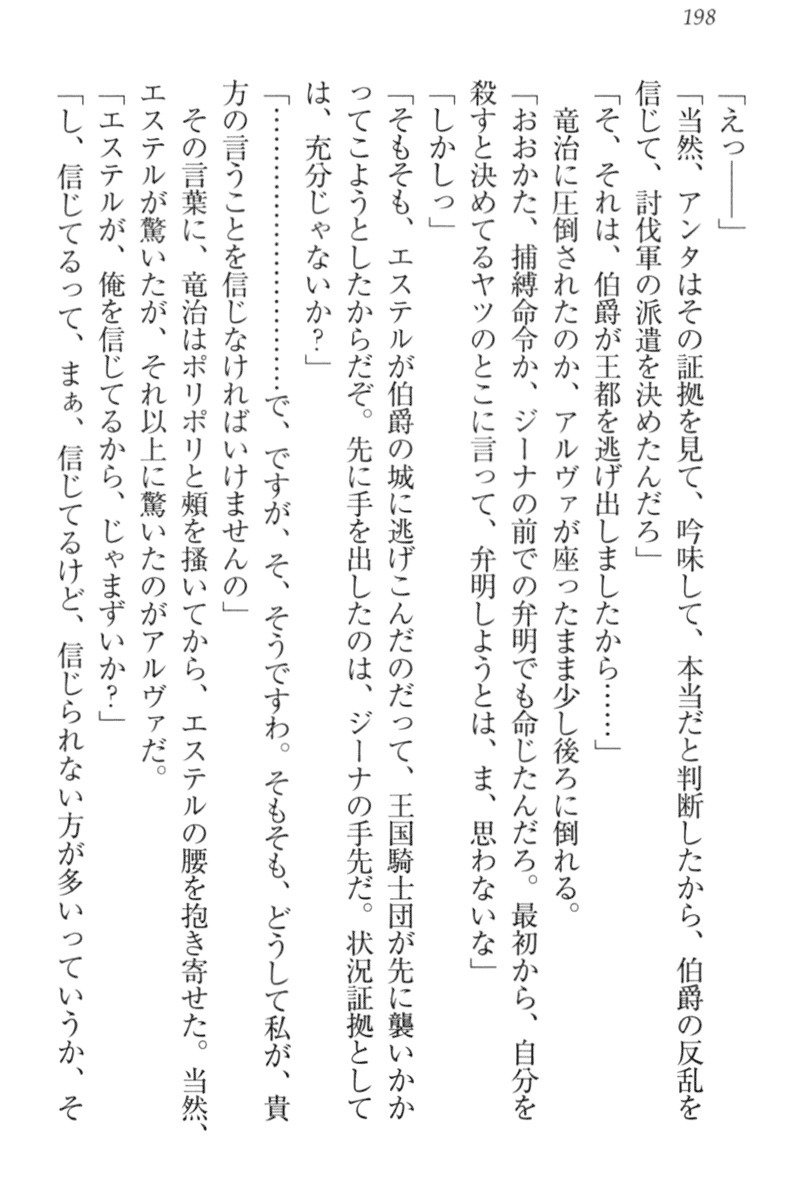 198
「えっ――」
「当然、アンタはその証拠を見て、吟味して、本当だと判断したから、伯爵の反乱を
信じて、討伐軍の派遣を決めたんだろ」
「そ、それは、伯爵が王都を逃げ出しましたから……」
竜治に圧倒されたのか、アルヴァが座ったまま少し後ろに倒れる。
「おおかた、捕縛命令か、ジーナの前での弁明でも命じたんだろ。最初から、自分を
殺すと決めてるヤツのとこに言って、弁明しようとは、ま、思わないな」
「しかしっ」
「そもそも、エステルが伯爵の城に逃げこんだのだって、王国騎士団が先に襲いかか
ってこようとしたからだぞ。先に手を出したのは、ジーナの手先だ。状況証拠として
は、充分じゃないか？」
「……………………で、ですが、そ、そうですわ。そもそも、どうして私が、貴
方の言うことを信じなければいけませんの」
その言葉に、竜治はポリポリと頰を掻いてから、エステルの腰を抱き寄せた。当然、
エステルが驚いたが、それ以上に驚いたのがアルヴァだ。
「エステルが、俺を信じてるから、じゃまずいか？」
「し、信じてるって、まぁ、信じてるけど、信じられない方が多いっていうか、そ